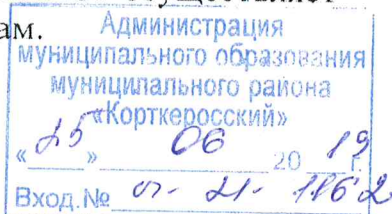 ам.
Администрация
муниципального образования
муниципального района
«Корткеросский»
«25» 06 2019 г.
Вход.№ 01-21-1162